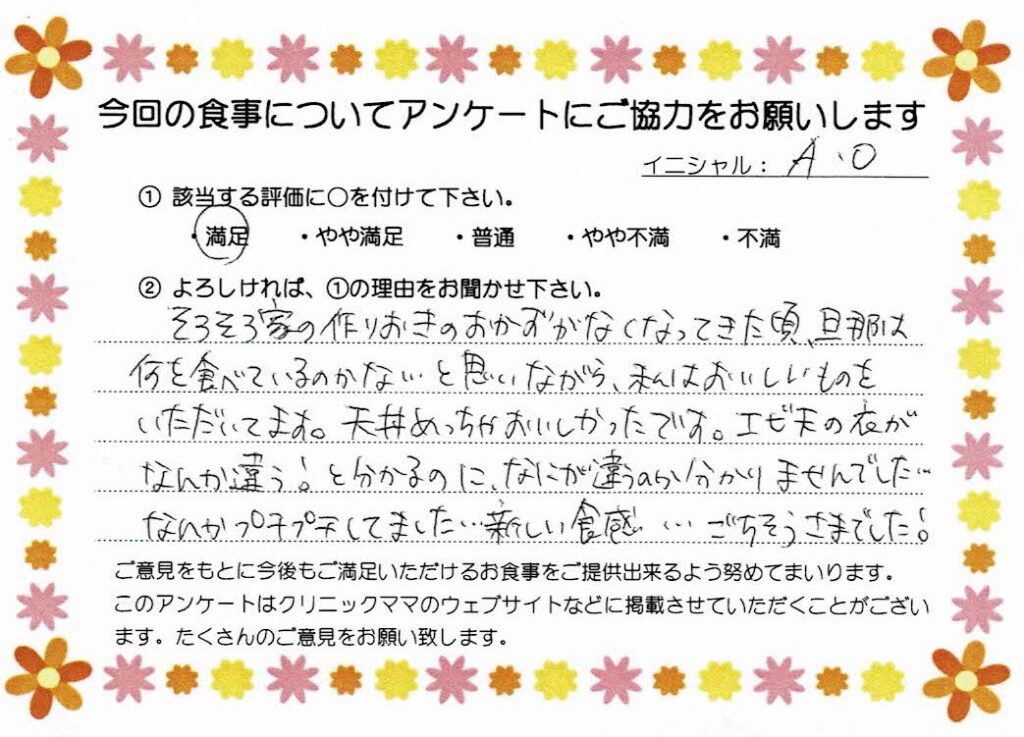 今回の食事についてアンケートにご協力をお願いします
イニシャル： A.O
① 該当する評価に〇を付けて下さい。
・満足 ・やや満足 ・普通 ・やや不満 ・不満
② よろしければ、①の理由をお聞かせ下さい。
そろそろ家の作りおきのおかずがなくなってきた頃、旦那は
何を食べているのかな…と思いながら、私はおいしいものを
いただいてます。天丼めっちゃおいしかったです。エビ天の衣が
なんか違う！と分かるのに、なにが違うのか分かりませんでした…
なんかプチプチしてました…新しい食感…ごちそうさまでした！
ご意見をもとに今後もご満足いただけるお食事をご提供出来るよう努めてまいります。
このアンケートはクリニックママのウェブサイトなどに掲載させていただくことがござい
ます。たくさんのご意見をお願い致します。